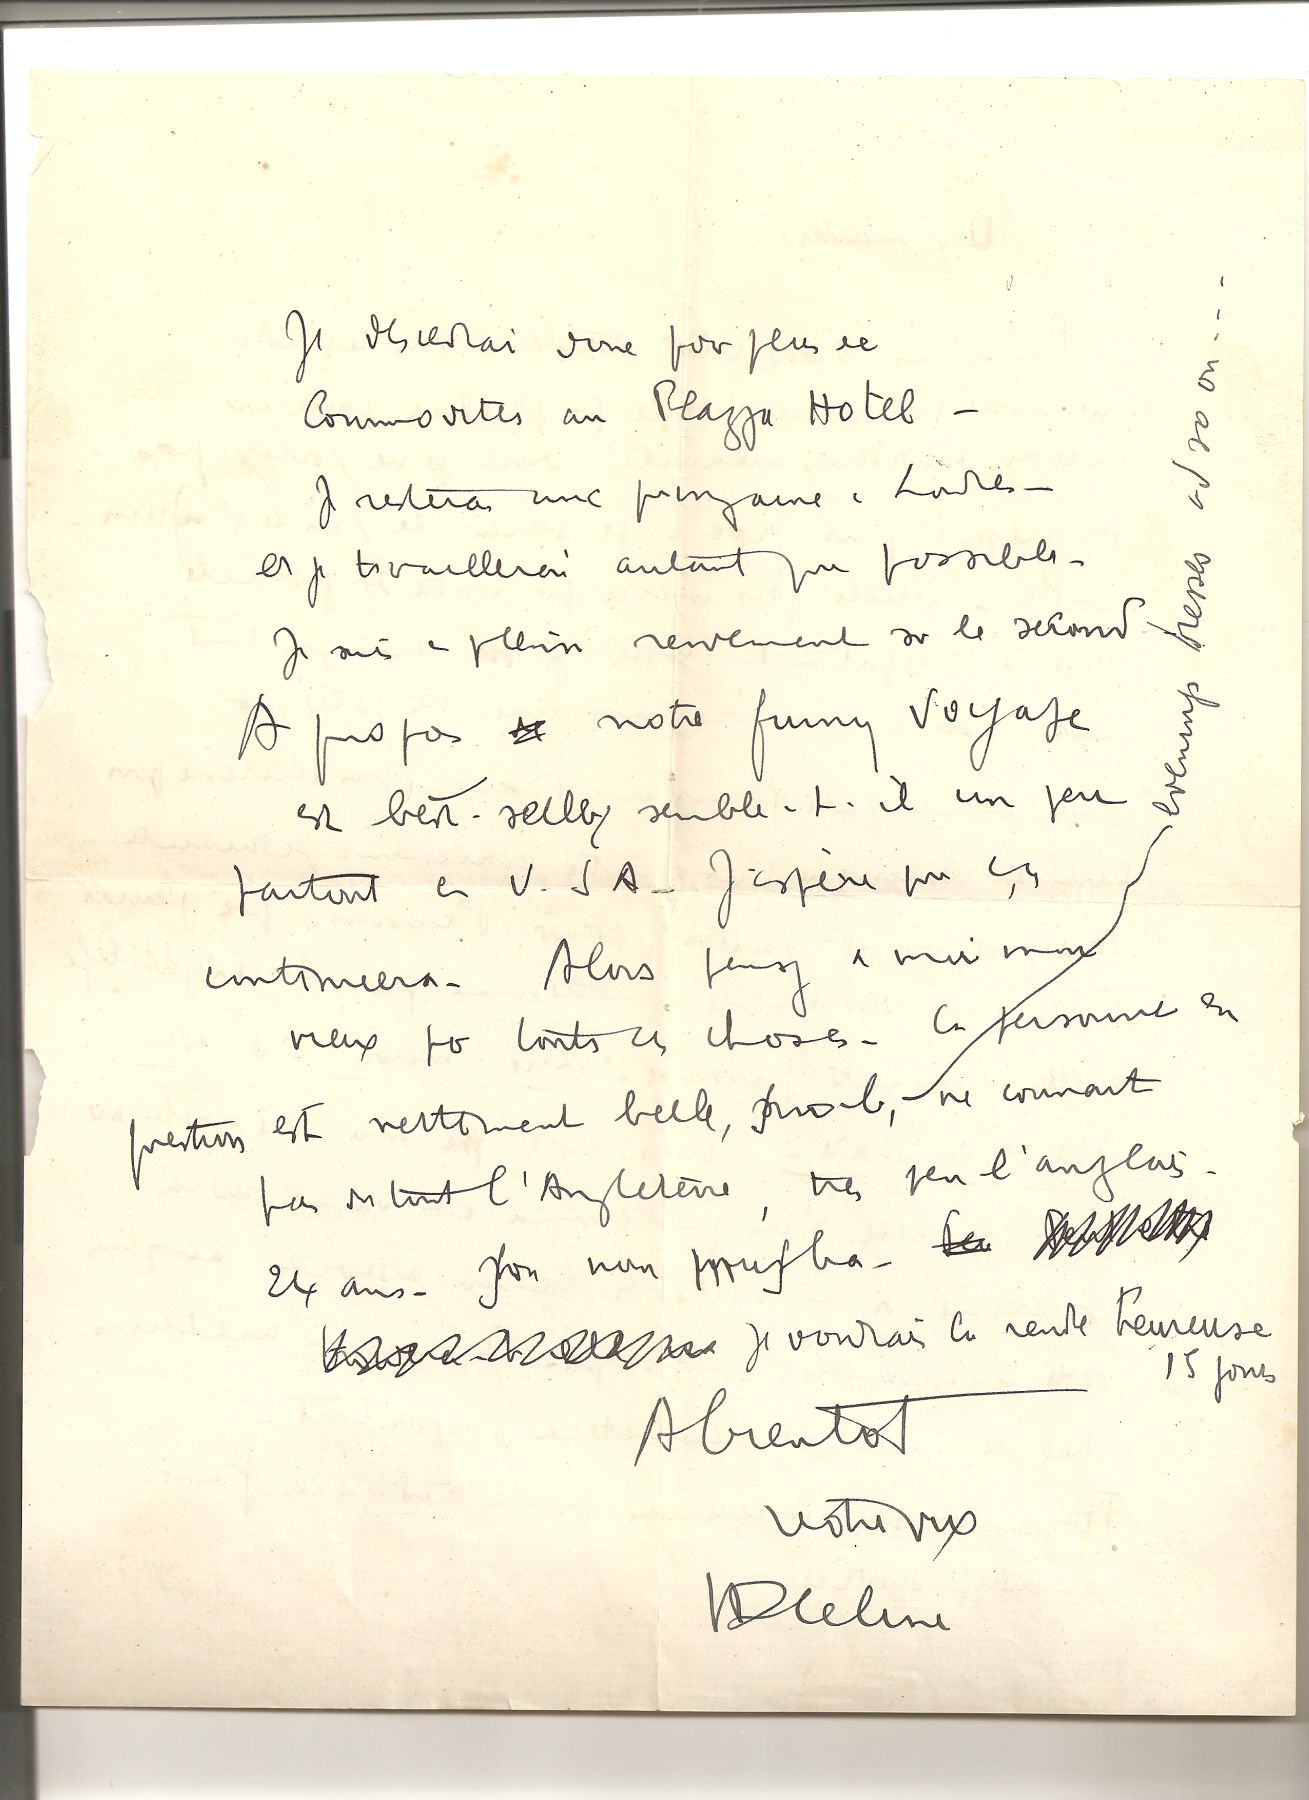 Je descendrai donc pour plus de
Commodités au Plazza Hotel -
Je resterai une quinzaine à Londres -
et je travaillerai autant que possible -
Je suis en plein remuement sur le second
A propos notre funny Voyage
est best-seller semble-t-il un peu
partout en U.S.A - J'espère que ça
continuera - Alors pensez à moi mon
vieux pour toutes ces choses - la personne en
question est nettement belle, - ne connait
pas du tout l'Angleterre, très peu l'anglais -
24 ans - non
Je voudrais la rendre heureuse
15 jours
A bientot
votre vieux
LD Celine
evenings dresses and so on ...